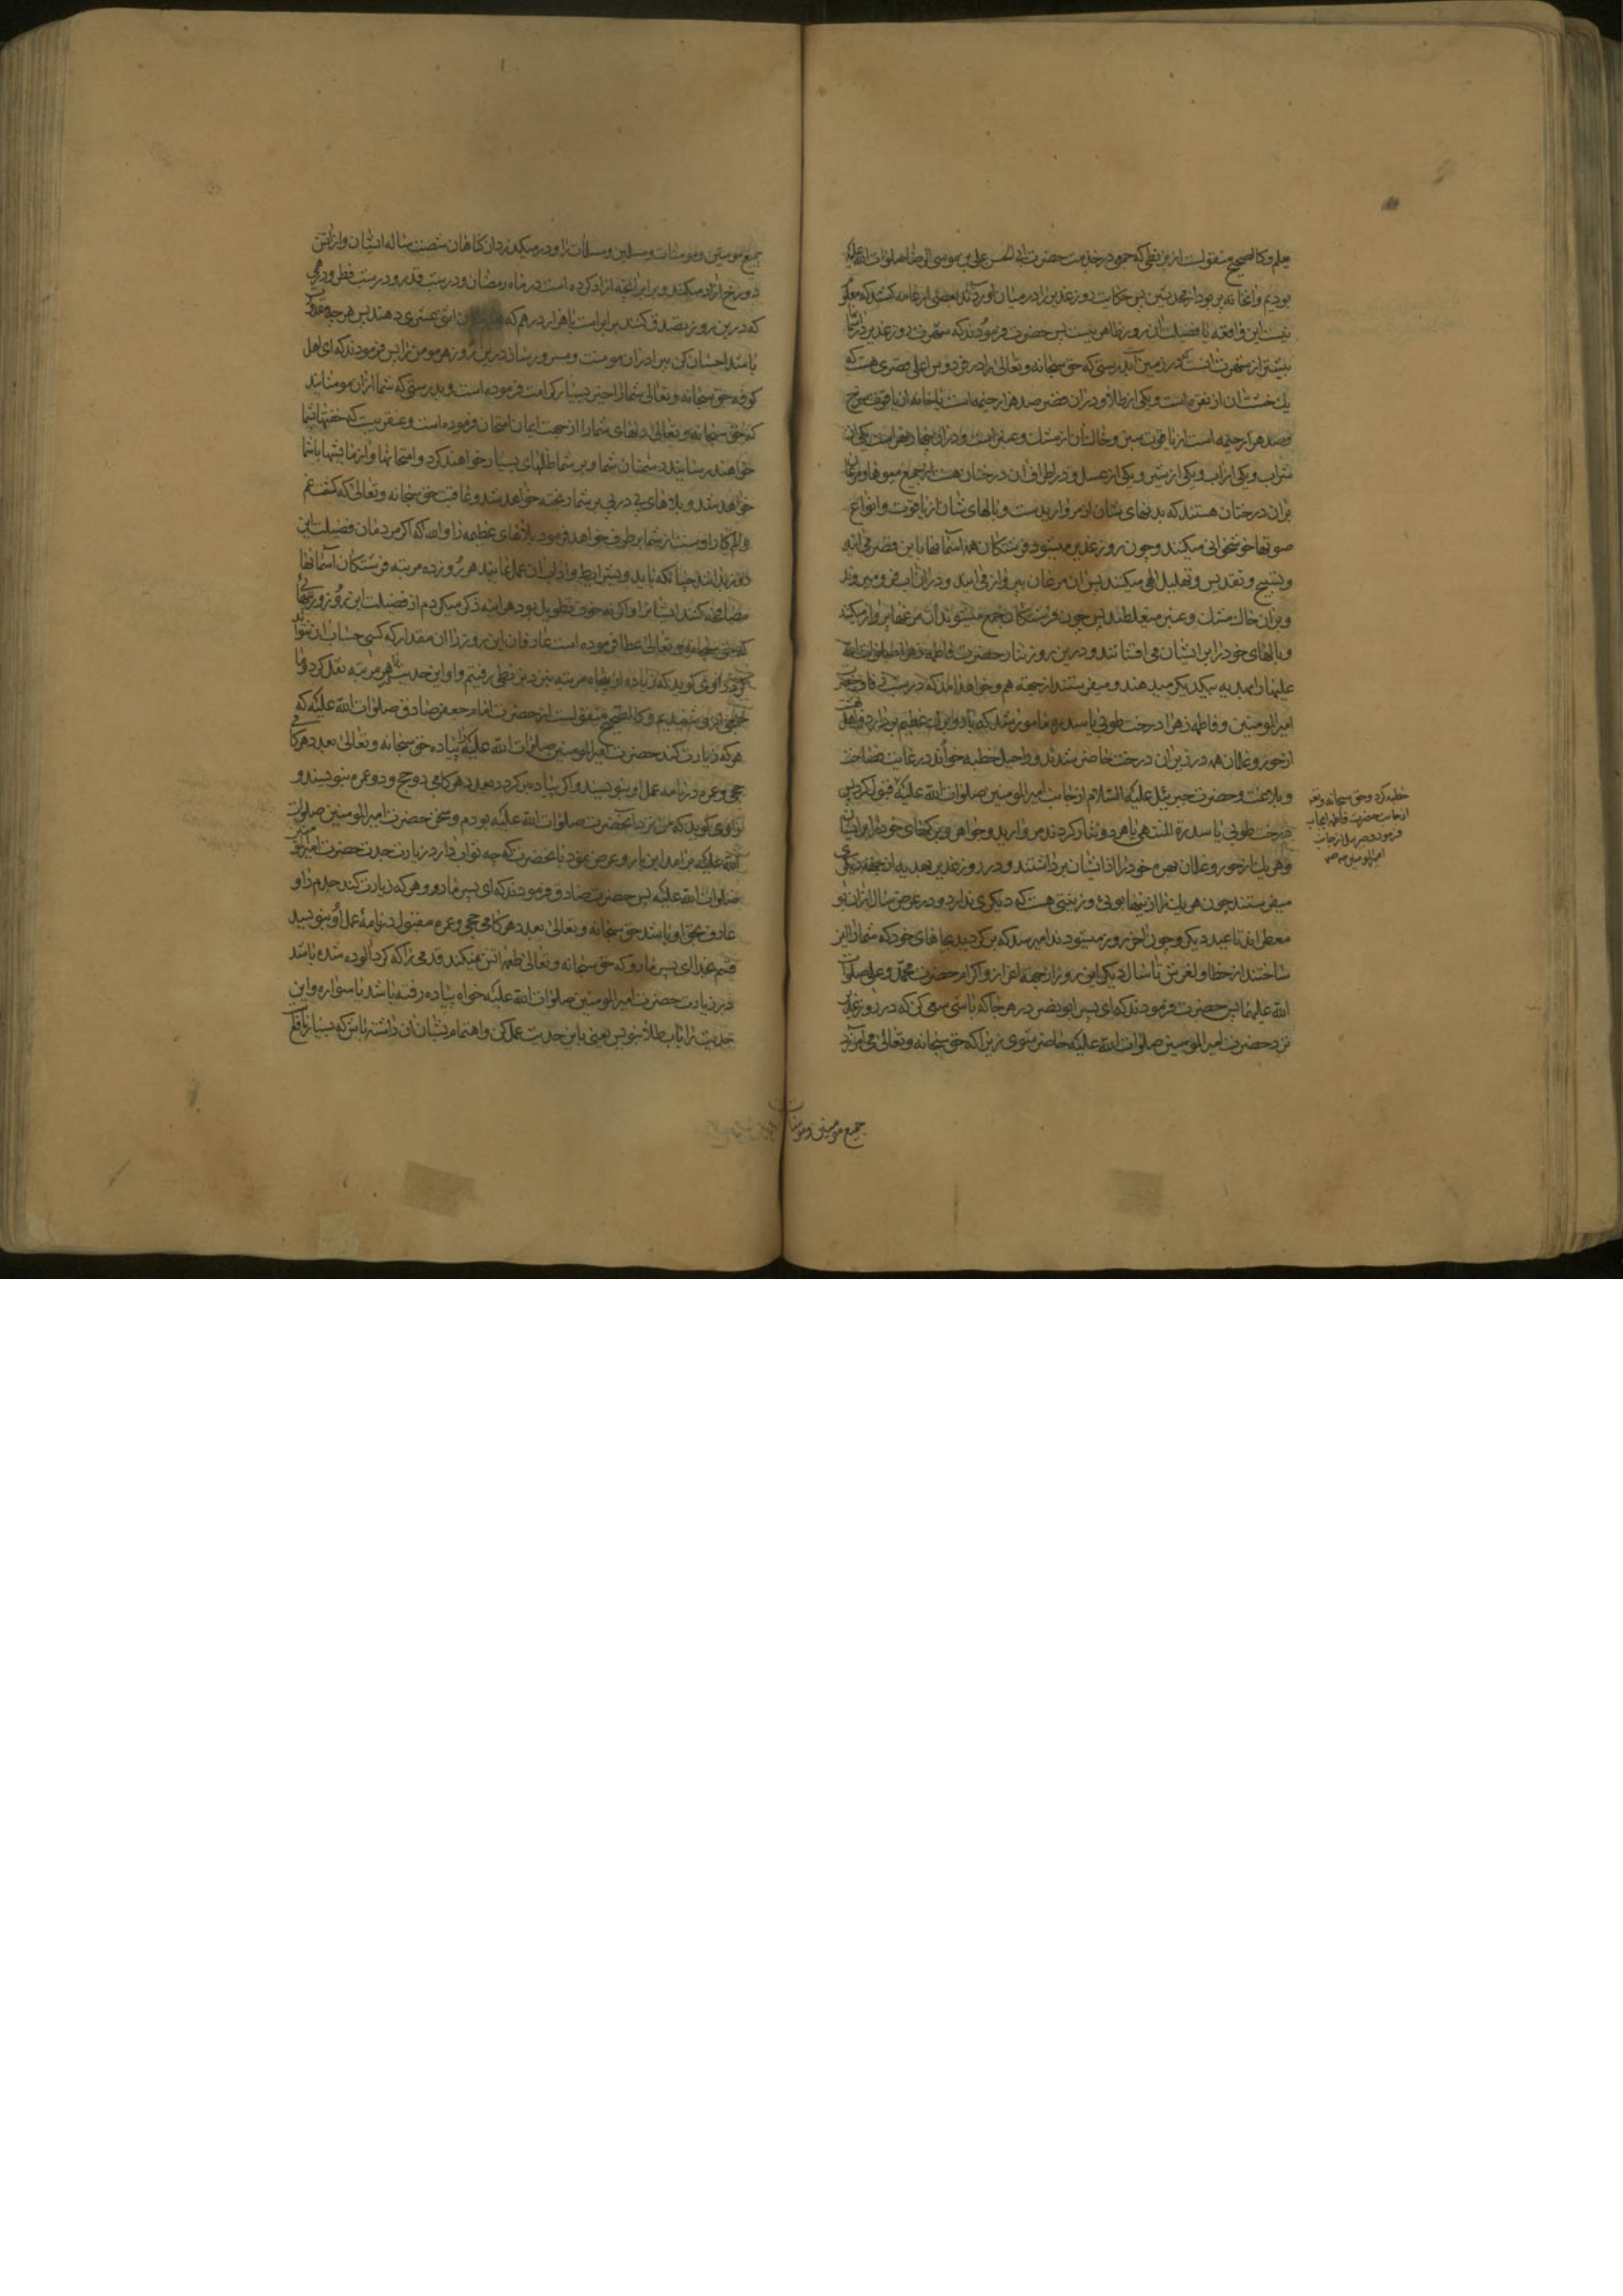 یعلم و کالصحیح منقولست از بزنطی که جمعی در خدمت حضرت ابی الحسن علی بن موسی الرضا صلوات الله علیه
بودیم و آنخانه پر بود از محدثین پس حکایت روز غدیر را در میان آوردند بعضی از عامه گفتند که معلوم
نیست این واقعه یا فضیلت آن روز ظاهر نیست پس حضرت فرمودند که شهرت روز غدیر در آسمانها
بیشتر از شهرت آنست در زمین بدرستی که حق سبحانه و تعالی را در فردوس اعلی قصری هست که
یک خشت آن از نقره است و یکی از طلا و در آن قصر صد هزار خیمه است یا خانه از یاقوت سرخ
و صد هزار خیمه است از یاقوت سبز و خاک آن از مشک و عنبر است و در آن چهار نهر است یکی از
شراب و یکی از آب و یکی از شیر و یکی از عسل و در اطراف آن درختان هست از جمیع میوها و مرغان
بر آن درختان هستند که بدنهای ایشان از مروارید است و بالهای شان از یاقوت و انواع
صوتها خوشخوانی میکنند و چون روز غدیر میشود فرشتکان همه آسمانها باین قصر می آیند
و تسبیح و تقدیس و تهلیل الهی میکنند پس آن مرغان بپرواز می آیند و در آن آب فرو میروند
و بر آن خاک مشک و عنبر میغلطند پس چون فرشتکان جمع میشوند آن مرغها پرواز میکنند
و بالهای خود را بر ایشان می افشانند و درین روز نثار حضرت فاطمه زهرا صلوات الله
علیها را بهدیه بیکدیکر میدهند و میفرستند از جهة هم و خواهد آمد که در شب زفاف حضرت
امیر المومنین و فاطمه زهرا درخت طوبی یا سدره مامور شد که بار و بر آن عظیم بردارد و اهل بهشت
از حور و غلمان همه در زیر آن درخت حاضر شدند و راحیل خطبه خواند در غایت فصاحت
و بلاغت و حضرت جبرئیل علیه السلام از جانب امیر المومنین صلوات الله علیه قبول کرد پس
درخت طوبی یا سدرة المنتهی یا هر دو نثار کردند مروارید و جواهر و برکهای خود را بر ایشان
و هر یک از حور و غلمان بهره خود را از ایشان برداشتند و در روز غدیر بهدیه از جهة دیکری
میفرستند چون هر یک را از اینها بوئی و زینتی هست که دیکری ندارد و در عرض سال از آن بو
معطراند تا عید دیکر و چون آخر روز میشود ندا میرسد که برکردید بجاهای خود که شما را ایمن
ساختند از خطا و لغزش تا سال دیکر این روز از جهة اعزاز و اکرام حضرت محمد و علی صلوات
الله علیهما پس حضرت فرمودند که ای پسر ابو نصر در هر جا که باشی سعی کن که در روز غدیر
نزد حضرت امیر المومنین صلوات الله علیه حاضر شوی زیرا که حق سبحانه و تعالی می آمرزد
خطبه کرد و حق سبحانه و تعالی
از جانب حضرت فاطمه ایجاب
فرمود و جبرئیل از جانب
امیر المومنین
جمیع مومنین و مومنات
جمیع مومنین و مومنات و مسلمین و مسلمات را و در میکذرد از کناهان شصت ساله ایشان و از آتش
دوزخ آزاد میکند دو برابر آنچه آزاد کرده است در ماه رمضان و در شب قدر و در شب فطر و درهمی
که درین روز تصدق کنند برابر است با هزار درهم که
باشد احسان کن ببرادران مومنت و مسرور ساز درین روز هر مومن را پس فرمودند که ای اهل
کوفه حق سبحانه و تعالی شما را خیر بسیار کرامت فرموده است و بدرستی که شما از آن مومنانید
که حق سبحانه و تعالی دلهای شما را از جهت ایمان امتحان فرموده است و عنقریبست که خفتها بشما
خواهند رسانید دشمنان شما و بر شما ظلمهای بسیار خواهند کرد و امتحانها و آزمایشها با شما
خواهد شد و بلاهای پی در پی بر شما ریخته خواهد شد و عاقبت حق سبحانه و تعالی که کشف غم
و الم کار اوست از شما برطرف خواهد فرمود بلاهای عظیمه را و الله که اکر مردمان فضیلت این
روز بدانند چنانکه باید و بشرایط و آداب آن عمل نمایند هر روز ده مرتبه فرشتکان آسمانها
مصافحه کنند ایشانرا و اکر نه خوف تطویل بود هر آینه ذکر میکردم از فضیلت این روز و ثوابهائی
که حق سبحانه و تعالی عطا فرموده است عارفان این روز را آن مقدار که کسی حساب آن نتواند
کرد راوی کوید که زیاده از پنجاه مرتبه بنزد بزنطی رفتیم و او این حدیث را هر مرتبه نقل کرد و ما
همکی ازو شنیدیم و کالصحیح منقولست از حضرت امام جعفر صادق صلوات الله علیه که
هر که زیارت کند حضرت امیر المومنین صلوات الله علیه را پیاده حق سبحانه و تعالی بعدد هر کامی
حجی و عمره در نامه عمل او بنویسند و اکر پیاده برکردد بعدد هر کامی دو حج و دو عمره بنویسند و
راوی کوید که من نزد آنحضرت صلوات الله علیه بودم و سخن حضرت امیر المومنین صلوات
الله علیه بر آمد ابن مارد عرض نمود بآنحضرت که چه ثواب دارد زیارت جدت حضرت امیر المومنین
صلوات الله علیه پس حضرت صادق فرمودند که ای پسر مارد هر که زیارت کند جدم را و
عارف بحق او باشد حق سبحانه و تعالی بعدد هر کامی حجی و عمره مقبول در نامهٔ عمل او بنویسد
قسم بخدا ای پسر مارد که حق سبحانه و تعالی طعمه آتش نمیکند قدمی را که کرد آلوده شده باشد
در زیارت حضرت امیر المومنین صلوات الله علیه خواه پیاده رفته باشد یا سواره و این
حدیث را بآب طلا بنویس یعنی باین حدیث عمل کن و اهتمام بشان آن داشته باش که بسیار